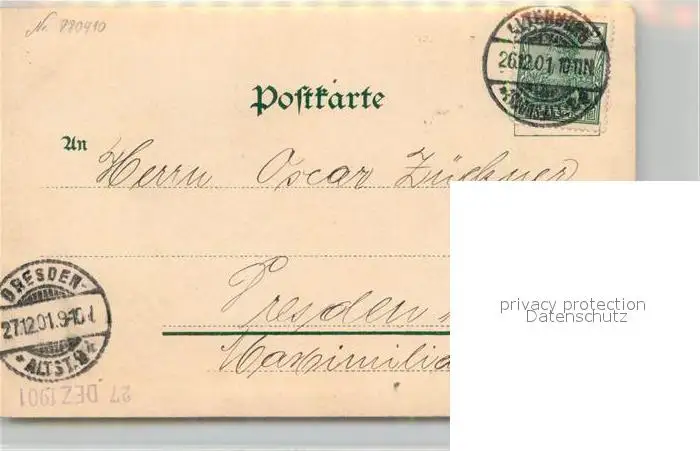 No 880410
ALTENBURG
26.12.01. 10-11N
Postkarte
An
Herrn Oscar Züchner
privacy protection
Datenschutz
Dresden
Maximilia
DRESDEN-
27.12.01.9-10V
* ALTST.
27 DEZ 1901